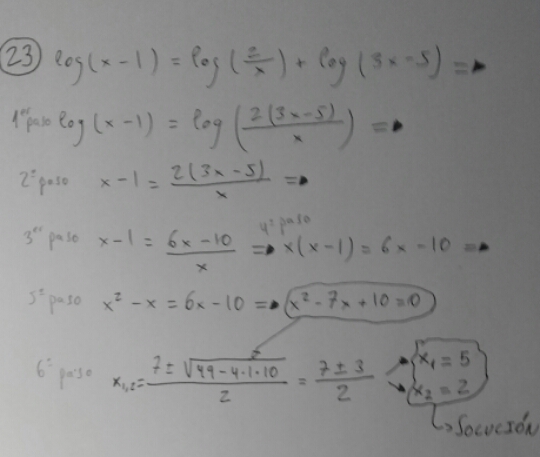 23 log(x-1) = log(2/x) + log(3x-5) ⇒
1er paso log(x-1) = log(2(3x-5)/x) ⇒
2º paso x-1 = 2(3x-5)/x ⇒
3er paso x-1 = 6x-10/x ⇒ 4º paso x(x-1) = 6x-10 ⇒
5º paso x²-x = 6x-10 ⇒ x²-7x+10=0
6º paso x1,2 = 7±√49-4·1·10/2 = 7±3/2 x1 = 5
x2 = 2
SOLUCIÓN